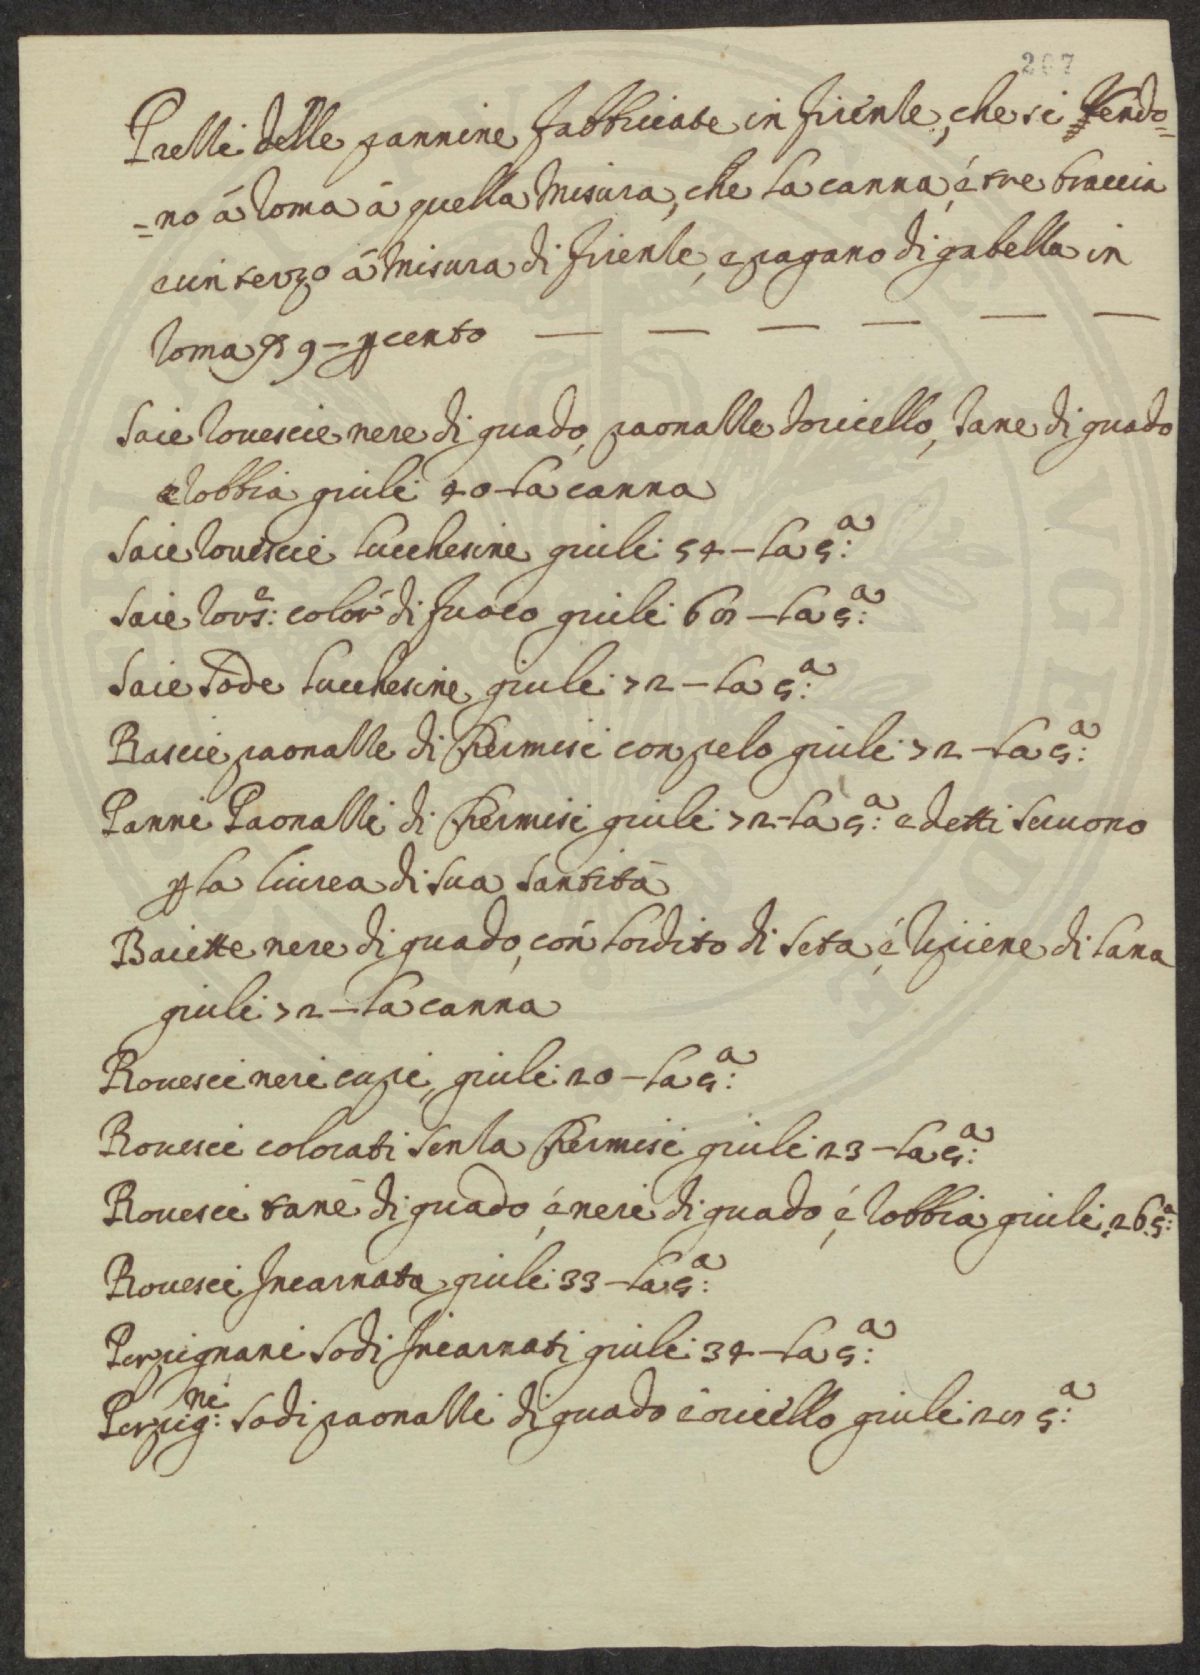 207
Prezzi delle pannine fabbricate in firenze, che si Vendo=
=no à Roma à quella Misura, che la canna, é tre braccia
e un terzo à Misura di firenze, e pagano di gabella in
Roma 9 - p cento — — — — — —
Saie Rouescie nere di guado, paonazze d'oricello, tane di guado
e Robbia giuli 40 - la canna
Saie Rouescie Lucchesine giuli 54 - la cª:
Saie Rovsᵉ: color di fuoco giuli 60 - la cª:
Saie Sode Lucchesine giuli 72 - la cª:
Rascie paonazze di Kermisi con pelo giuli 72 - la cª:
Panni Paonazzi di Kermisi giuli 72 - la cª: e detti Seruono
p la liurea di Sua Santità
Baiette nere di guado, con l'ordito di Seta, é Ripiene di Lana
giuli 72 - la canna
Rouesci neri cupi, giuli 20 - la cª:
Rouesci colorati Senza Kermisi giuli 23 - la cª:
Rouesci tanè di guado, é neri di guado, é Robbia giuli 26 cª:
Rouesci Incarnata giuli 33 - la cª:
Perpignani Sodi Incarnati giuli 34 - la cª:
Perpigⁿⁱ: Sodi paonazzi di guado è oricello giuli cª: